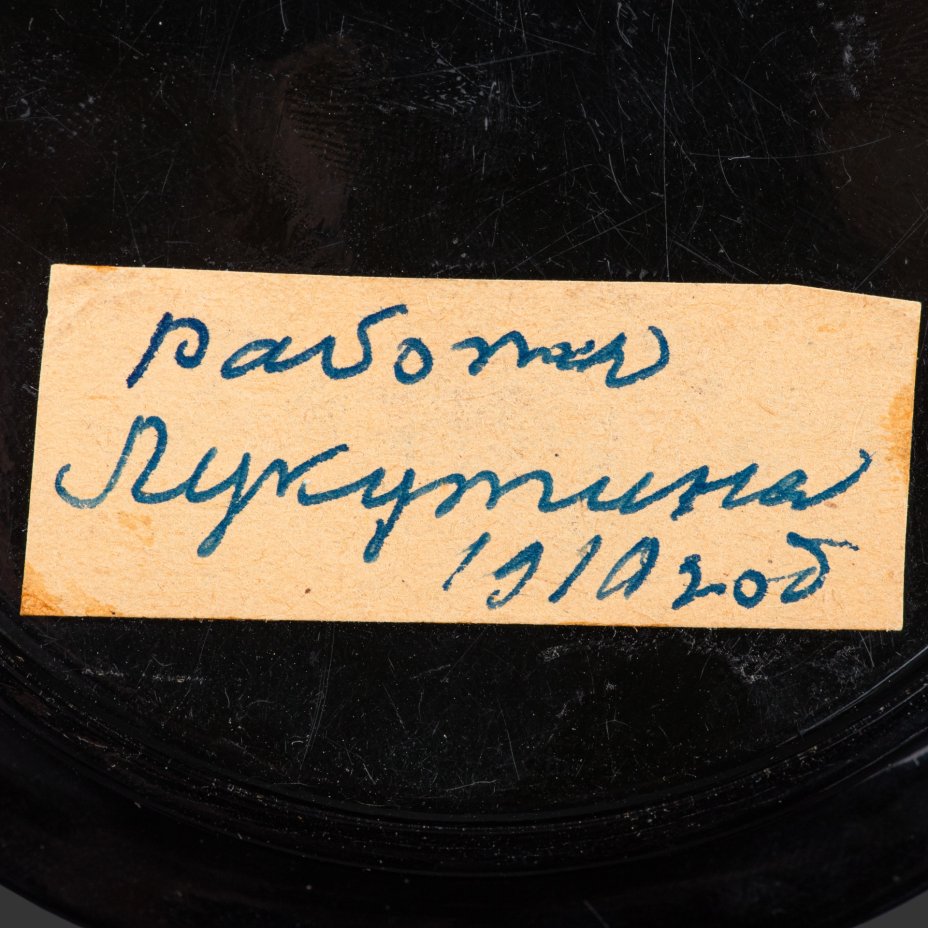 работа
Лукутина
1910 год